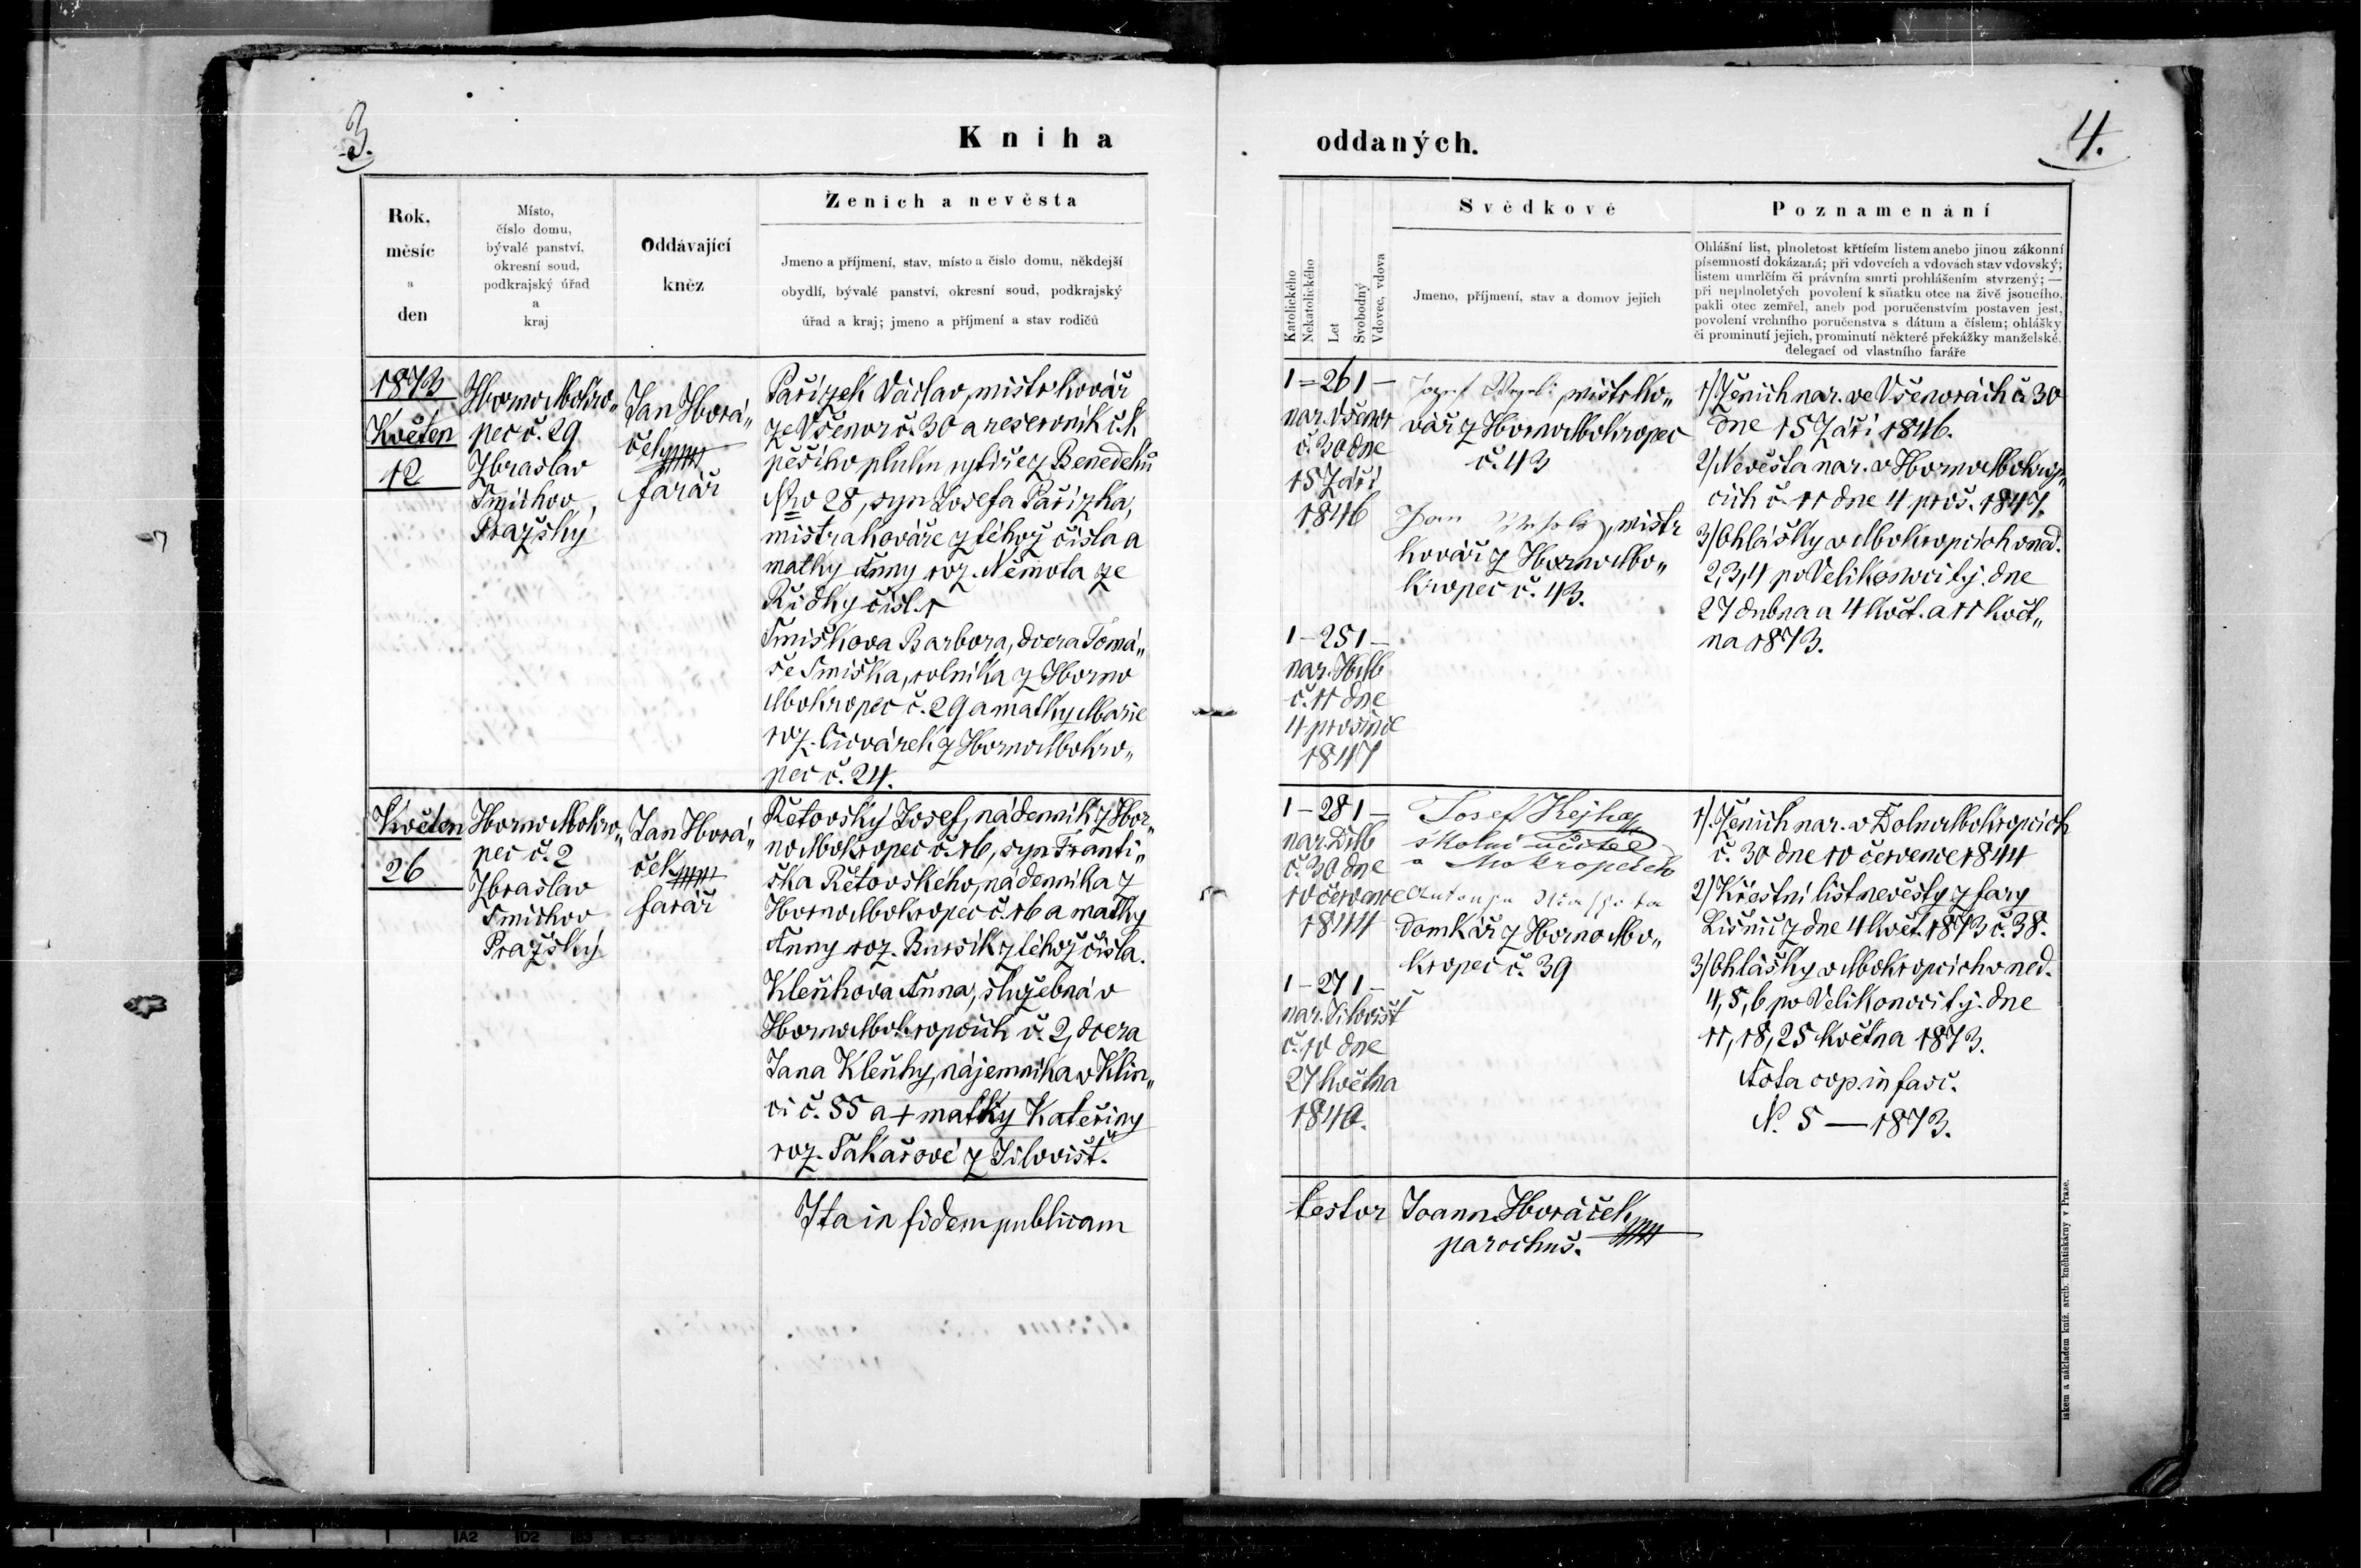 3.
Kniha
Rok,
měsíc
a
den
Místo,
číslo domu,
bývalé panství,
okresní soud,
podkrajský úřad
a
kraj
Oddávající
kněz
Ženich a nevěsta
Jmeno a příjmení, stav, místo a číslo domu, někdejší
obydlí, bývalé panství, okresní soud, podkrajský
úřad a kraj; jmeno a příjmení a stav rodičů
1873
Květen
12
Hornomokro„
pec č. 29
Zbraslav
Smíchov,
Pražský
Jan Horá„
ček
farář
Pařízek Václav, mistr kovář
ze Všenor č. 30 a reservník č. k
pěšího pluku rytíře z Benedeků
Nro 28, syn Josefa Pařízka,
mistra kováře z téhož čísla a
matky Anny roz. Němota ze
Řidky čísl. 1
Smíškova Barbora, dcera Tomá„
še Smíška, rolníka z Horno
Mokropec č. 29 a matky Marie
roz. Čiovárek z Hornomokro„
pec č. 24.
Květen
26
Hornomokro„
pec č. 2
Zbraslav
Smíchov
Pražský
Jan Horá„
ček
farář
Řetovský Josef, nádenník z Hor„
nomokropec č. 16, syn Franti„
ška Řetovského, nádenníka z
Hornomokropec č. 16 a matky
Anny roz. Bursík z téhož čísla.
Kleňhova Anna, služebná v
Hornomokropcích č. 2, dcera
Jana Kleňhy, nájemníka v Klín„
ci č. 55 a + matky Kateřiny
roz. Sakařové z Jílovišť.
Ita in fidem publicam
oddaných.
4.
Katolického
Nekatolického
Let
Svobodný
Vdovec, vdova
Svědkové
Jmeno, příjmení, stav a domov jejich
Poznamenání
Ohlášní list, plnoletost křtícím listem anebo jinou zákonní
písemností dokázaná; při vdovcích a vdovách stav vdovský;
listem umrlčím či právním smrti prohlášením stvrzený; —
při neplnoletých povolení k sňatku otce na živě jsoucího,
pakli otec zemřel, aneb pod poručenstvím postaven jest,
povolení vrchního poručenstva s dátum a číslem; ohlášky
či prominutí jejich, prominutí některé překážky manželské,
delegací od vlastního faráře
1 = 26 1 —
nar. Všenor
č. 30 dne
15 Září
1846
1 — 25 1 —
nar. HMb
č. 11 dne
4 prosince
1847
Jozef mistr ko„
vář z Hornomokropec
č. 43
Jan mistr
kovář z Hornomo„
kropec č. 43.
1) Ženich nar. ve Všenorách č. 30
dne 15 Září 1846.
2) Nevěsta nar. v Hornomokrop„
cích č. 11 dne 4 pros. 1847.
3) Ohlášky v Mokropcích v ned.
2, 3, 4 po Velikonoci t. j. dne
27 dubna a 4 květ. a 11 květ„
na 1873.
1 — 28 1 —
nar. DMb
č. 30 dne
10 července
1844
1 — 27 1 —
nar. Jílovišť
č. 10 dne
27 května
1846.
Josef Hejhal
školní učitel
v Mokropcích
Antonín
domkář z Hornomo„
kropec č. 39
1) Ženich nar. v Dolnomokropcích
č. 30 dne 10 července 1844
2) Křestní list nevěsty z fary
Líšnic z dne 4 květ. 1873 č. 38.
3) Ohlášky v Mokropcích v ned.
4, 5, 6 po Velikonoci t. j. dne
11, 18, 25 května 1873.
Acta cop. in fasc.
N. 5 — 1873.
testor Joann. Horáček
parochus.